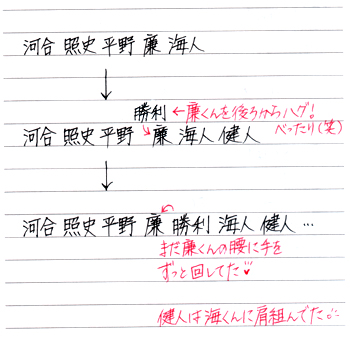 河合 照史 平野 廉 海人
↓
勝利 ←廉くんを後ろからハグ!
べったり(笑)
河合 照史 平野 廉 海人 健人
↓
河合 照史 平野 廉 勝利 海人 健人 …
まだ廉くんの腰に手を
ずっと回してた♡
健人は海くんに肩組んでた